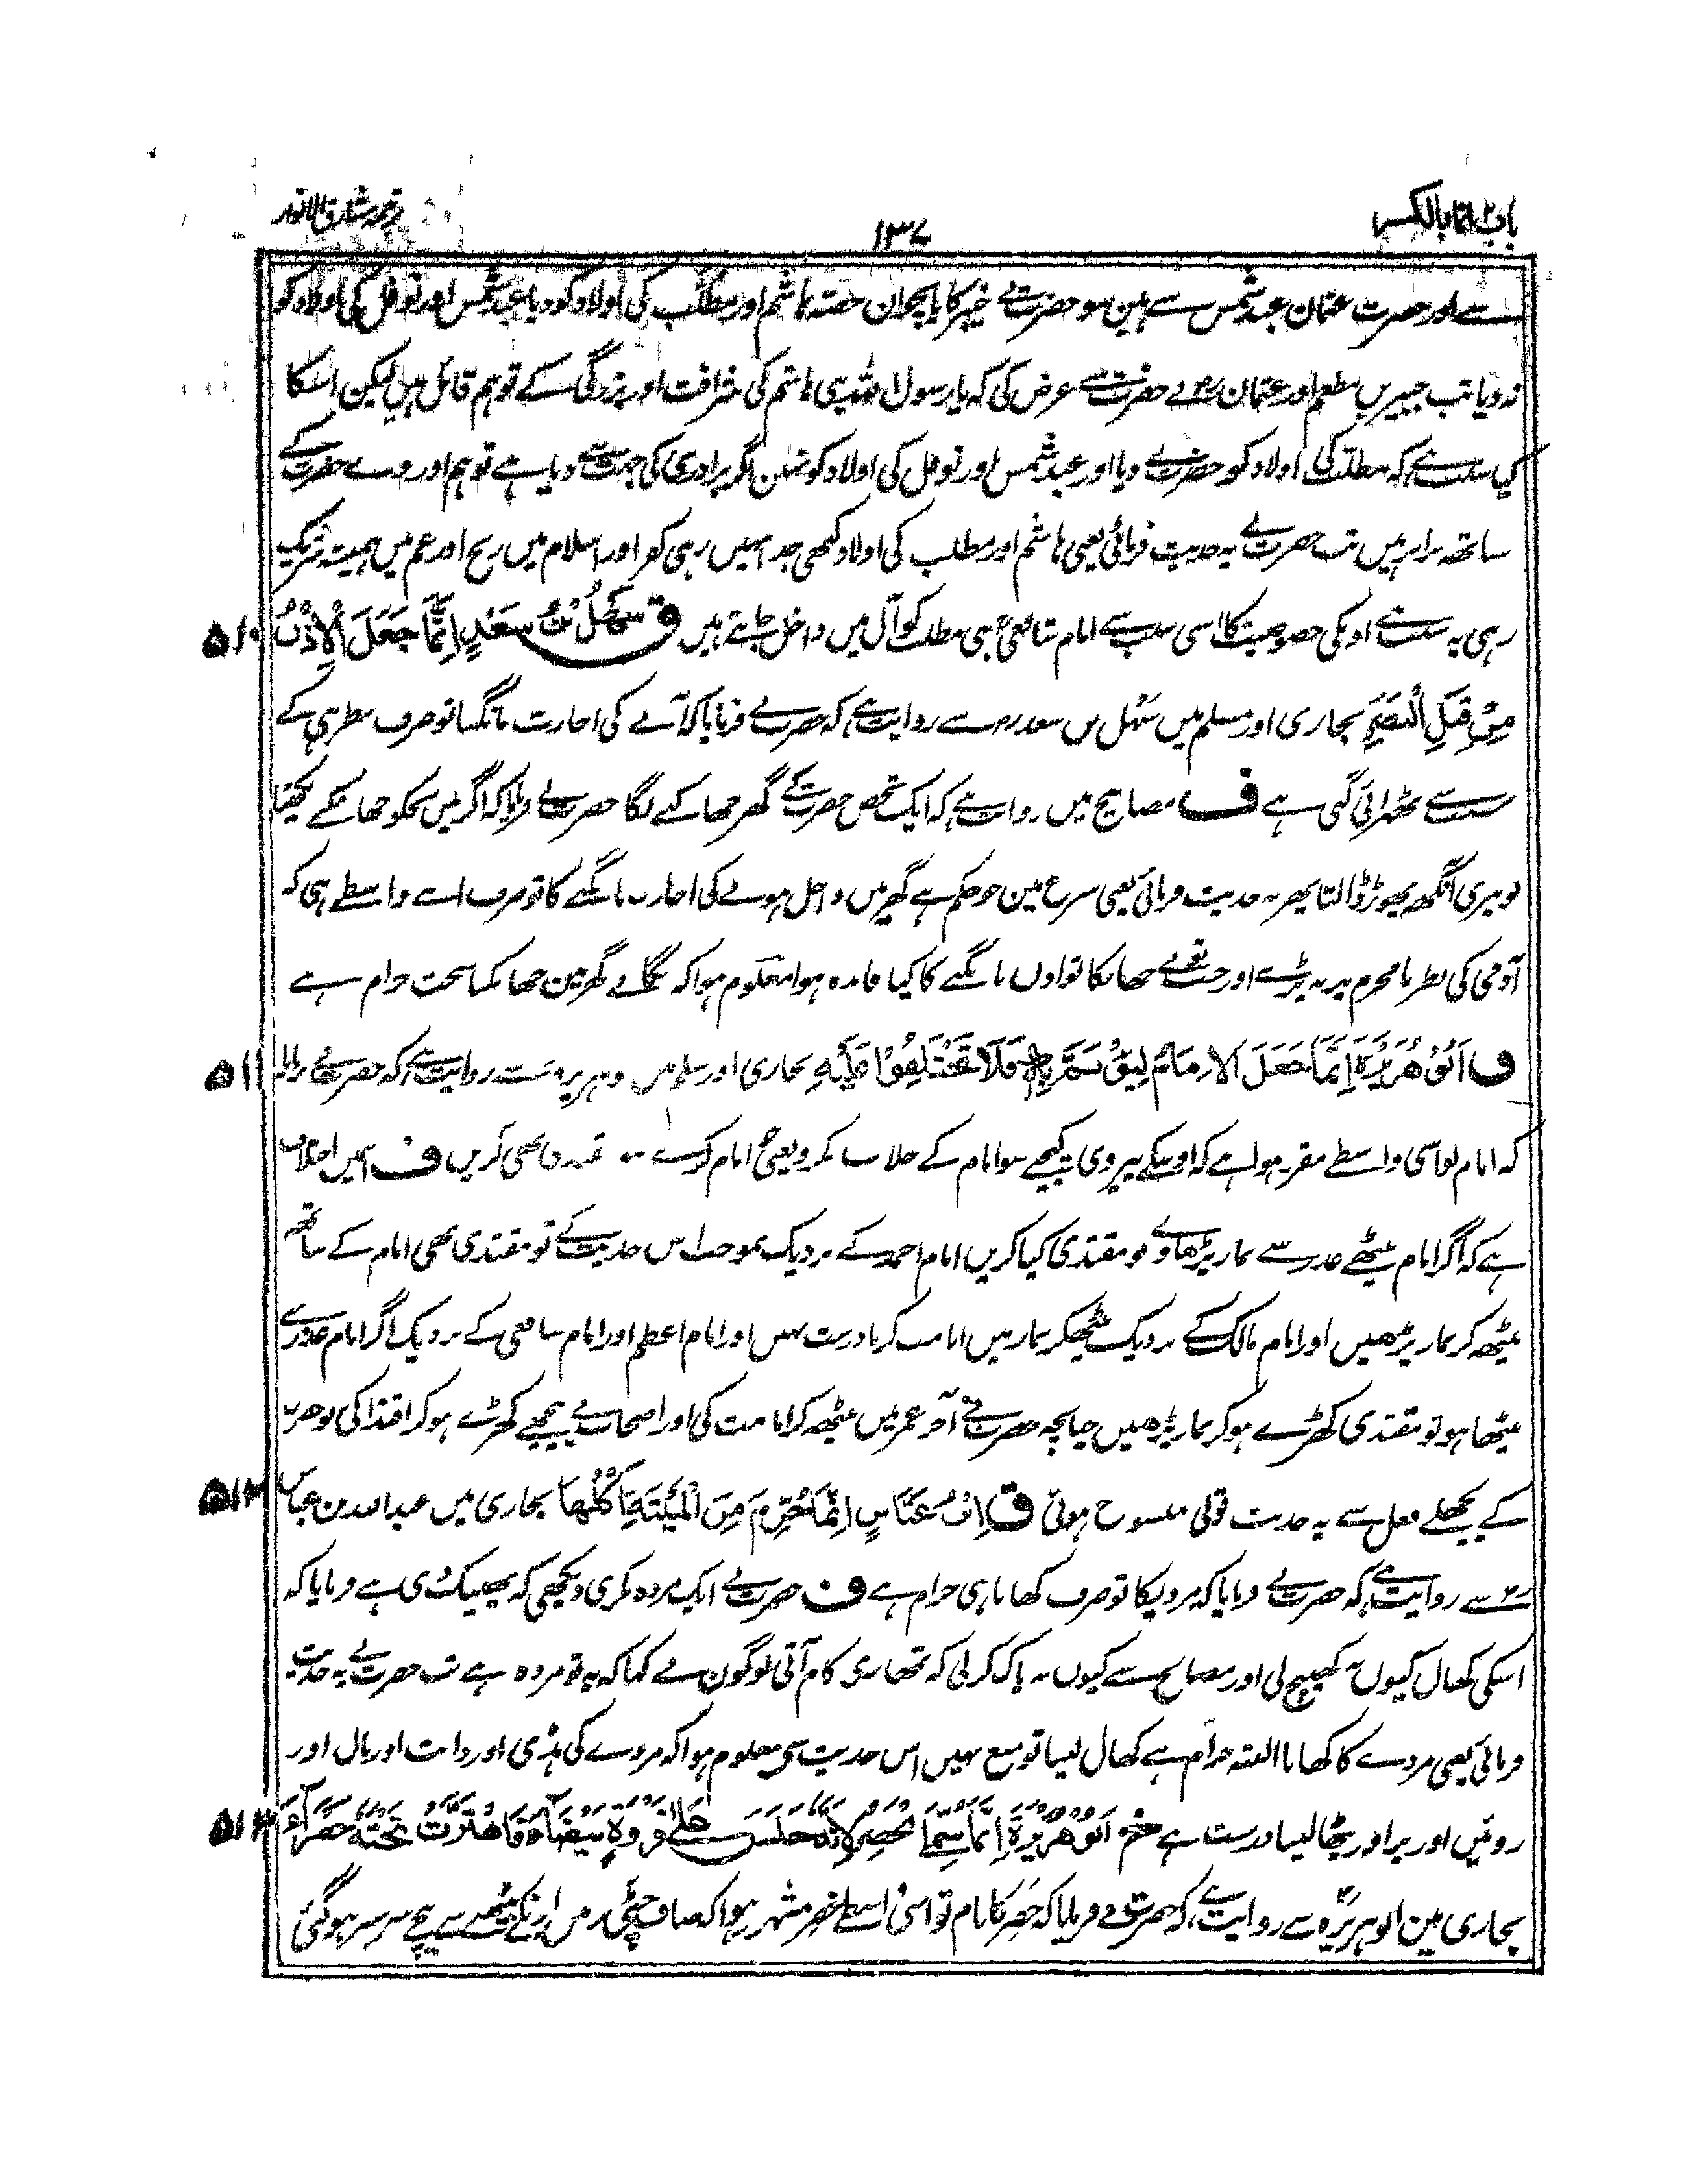 باب انما بالکسر
۱۳۷
ترجمہ مشارق الانوار
سے اور حضرت عثمان عبد شمس سے ہین سو حضرت نے خیبر کا پانچوان حصہ ہاشم اور مطلب کی اولاد کو دیا عبد شمس اور نوفل کی اولاد کو
نہ دیا تب جبیر بن مطعم اور عثمان رض نے حضرت سے عرض کی کہ یا رسول اللہ بنی ہاشم کی شرافت اور بزرگی کے تو ہم قائل ہیں لیکن اسکا
کیا سبب ہے کہ مطلب کی اولاد کو حضرت نے دیا اور عبد شمس اور نوفل کی اولاد کو نہین اگر برادری کی جہت سے دیا ہے تو ہم اور وے حضرت کے
ساتھ برابر ہیں تب حضرت نے یہ حدیث فرمائی یعنی ہاشم اور مطلب کی اولاد کبھی جدا نہیں رہی کفر اور اسلام میں رنج اور غم میں ہمیشہ شریک
رہی یہ سبب ہے اونکی خصوصیت کا اسی سبب سے امام شافعی بنی مطلب کو آل میں داخل جانتے ہیں ق سَهْلُ بْنُ سَعْدٍ اِنَّمَا جُعِلَ الْاِذْنُ
۵۱۰
مِنْ قِبَلِ الْبَصَرِ بخاری اور مسلم میں سہل بن سعد رض سے روایت ہے کہ حضرت نے فرمایا کہ آنے کی اجازت مانگنا تو صرف نظر ہی کے
سبب سے ٹھہرائی گئی ہے ف مصابیح میں روایت ہے کہ ایک شخص حضرت کے گھر جھانکنے لگا حضرت نے فرمایا کہ اگر میں تجکو جھانکتے دیکھتا
تو تیری آنکھ پھوڑ ڈالتا پھر یہ حدیث فرمائی یعنی شرع مین جو حکم ہے گھر میں داخل ہونے کی اجازت مانگنے کا تو صرف اسے واسطے ہی کہ
آدمی کی نظر نا محرم پر نہ پڑے اور جب تو نے جھانکا تو اذن مانگنے کا کیا فائدہ ہوا معلوم ہوا کہ بیگانے گھر مین جھانکنا سخت حرام ہے
ق اَبُوْ هُرَيْرَةَ اِنَّمَا جُعِلَ الْاِمَامُ لِيُؤْتَمَّ بِهٖ فَلَا تَخْتَلِفُوْا عَلَيْهِ بخاری اور مسلم میں ابو ہریرہ سے روایت ہے کہ حضرت نے فرمایا
۵۱۱
کہ امام تو اسی واسطے مقرر ہوا ہے کہ اوسکے پیروی کیجیے سو امام کے خلاف نکرو یعنی جو امام کرے مقتدی بھی کریں ف اسمیں اختلاف
ہے کہ اگر امام بیٹھے عذر سے نماز پڑھاوے تو مقتدی کیا کریں امام احمد کے نزدیک بموجب اس حدیث کے تو مقتدی بھی امام کے ساتھ
بیٹھ کر نماز پڑھیں اور امام مالک کے نزدیک بیٹھکر نماز میں امامت کرنا درست نہیں اور امام اعظم اور امام شافعی کے نزدیک اگر امام عذر سے
بیٹھا ہو تو مقتدی کھڑے ہو کر نماز پڑھیں چنانچہ حضرت نے آخر عمر میں بیٹھ کر امامت کی اور اصحاب نے پیچھے کھڑے ہو کر اقتدا کی تو حضرت
کے پچھلے فعل سے یہ حدیث قولی منسوخ ہوئی ق اِبْنُ عَبَّاسٍ اِنَّمَا حُرِّمَ مِنَ الْمَيْتَةِ اَكْلُهَا بخاری میں عبداللہ بن عباس
۵۱۲
رض سے روایت ہے کہ حضرت نے فرمایا کہ مردیکا تو صرف کھانا ہی حرام ہے ف حضرت نے ایک مردہ بکری دیکھی کہ پھینک دی ہے فرمایا کہ
اسکی کھال کیوں نہ کھینچ لی اور مصالح سے کیوں نہ پاک کر لی کہ تمھاری کام آتی لوگون نے کہا کہ یہ تو مردہ ہے تب حضرت نے یہ حدیث
فرمائی یعنی مردے کا کھانا البتہ حرام ہے کھال لینا تو منع نہیں اس حدیث سے معلوم ہوا کہ مردے کی ہڈی اور دانت اور بال اور
روئیں اور پر اور پٹھا لینا درست ہے خ اَبُوْ هُرَيْرَةَ اِنَّمَا سُمِّيَ الْخَضِرُ لِاَنَّهٗ جَلَسَ عَلٰى فَرْوَةٍ بَيْضَآءَ فَاهْتَزَّتْ تَحْتَهٗ خَضْرَآءَ
۵۱۳
بخاری مین ابو ہریرہ سے روایت ہے کہ حضرت نے فرمایا کہ خضر کا نام تو اسی واسطے خضر مشہور ہوا کہ صاف چٹی زمین اونکے بیٹھنے سے نیچے سرسبز ہو گئی